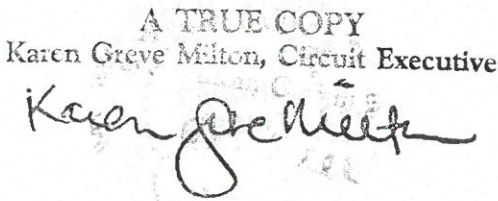 A TRUE COPY
Karen Greve Milton, Circuit Executive
Karen Greve Milton